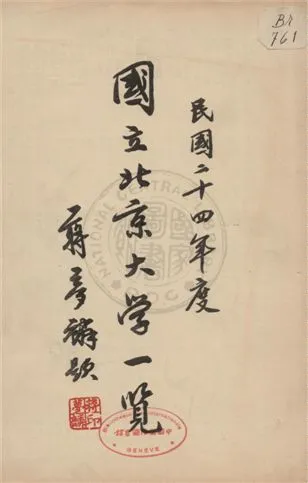 BR
761
民國二十四年度
國立北京大学一覽
蔣夢麟題
NATIONAL CENTRAL
GENEVE